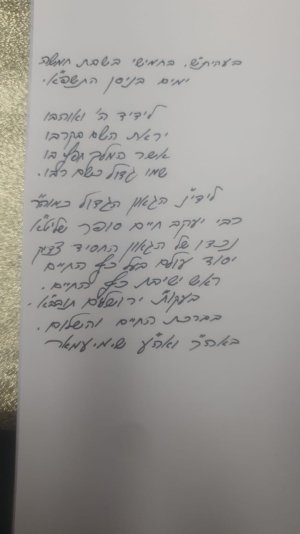 בעהית״ש, בחמישי בשבת חמשה
ימים בניסן התשפ״א.
לידיד ה' ואוהבו
יראת השם בקרבו
אשר המלך חפץ בו
שמו גדול כשם רבו.
לידי״נ הגאון הגדול כמוה״ר
רבי יעקב חיים סופר שליט״א
נכדו של הגאון החסיד צדיק
יסוד עולם בעל כף החיים
ראש ישיבת כף החיים.
בעקו״ת ירושלים תובב״א.
בברכת החיים והשלום.
באה״ר ואה״ע שימי עמאר